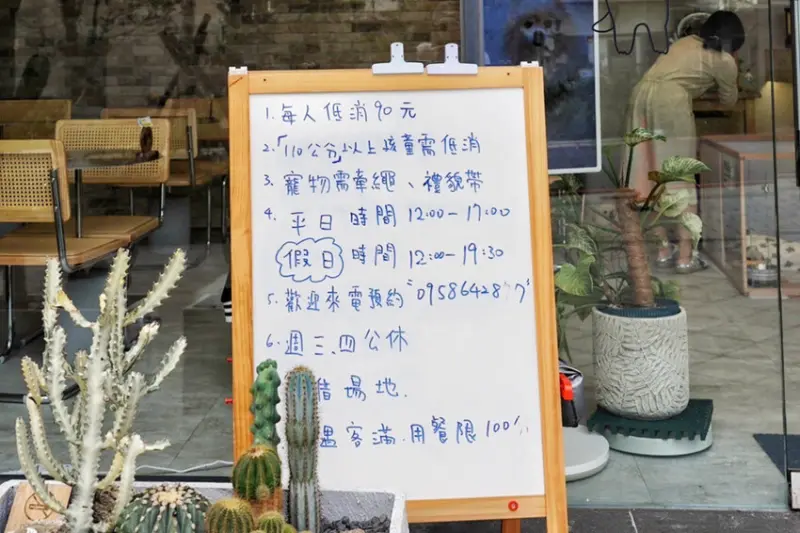 1. 每人低消90元
2.「110公分」以上孩童需低消
3. 寵物需牽繩、禮貌帶
4. 平日時間 12:00-17:00
假日 時間 12:00-19:30
5. 歡迎來電預約
6. 週三.四公休
借場地.
遇客滿.用餐限100分